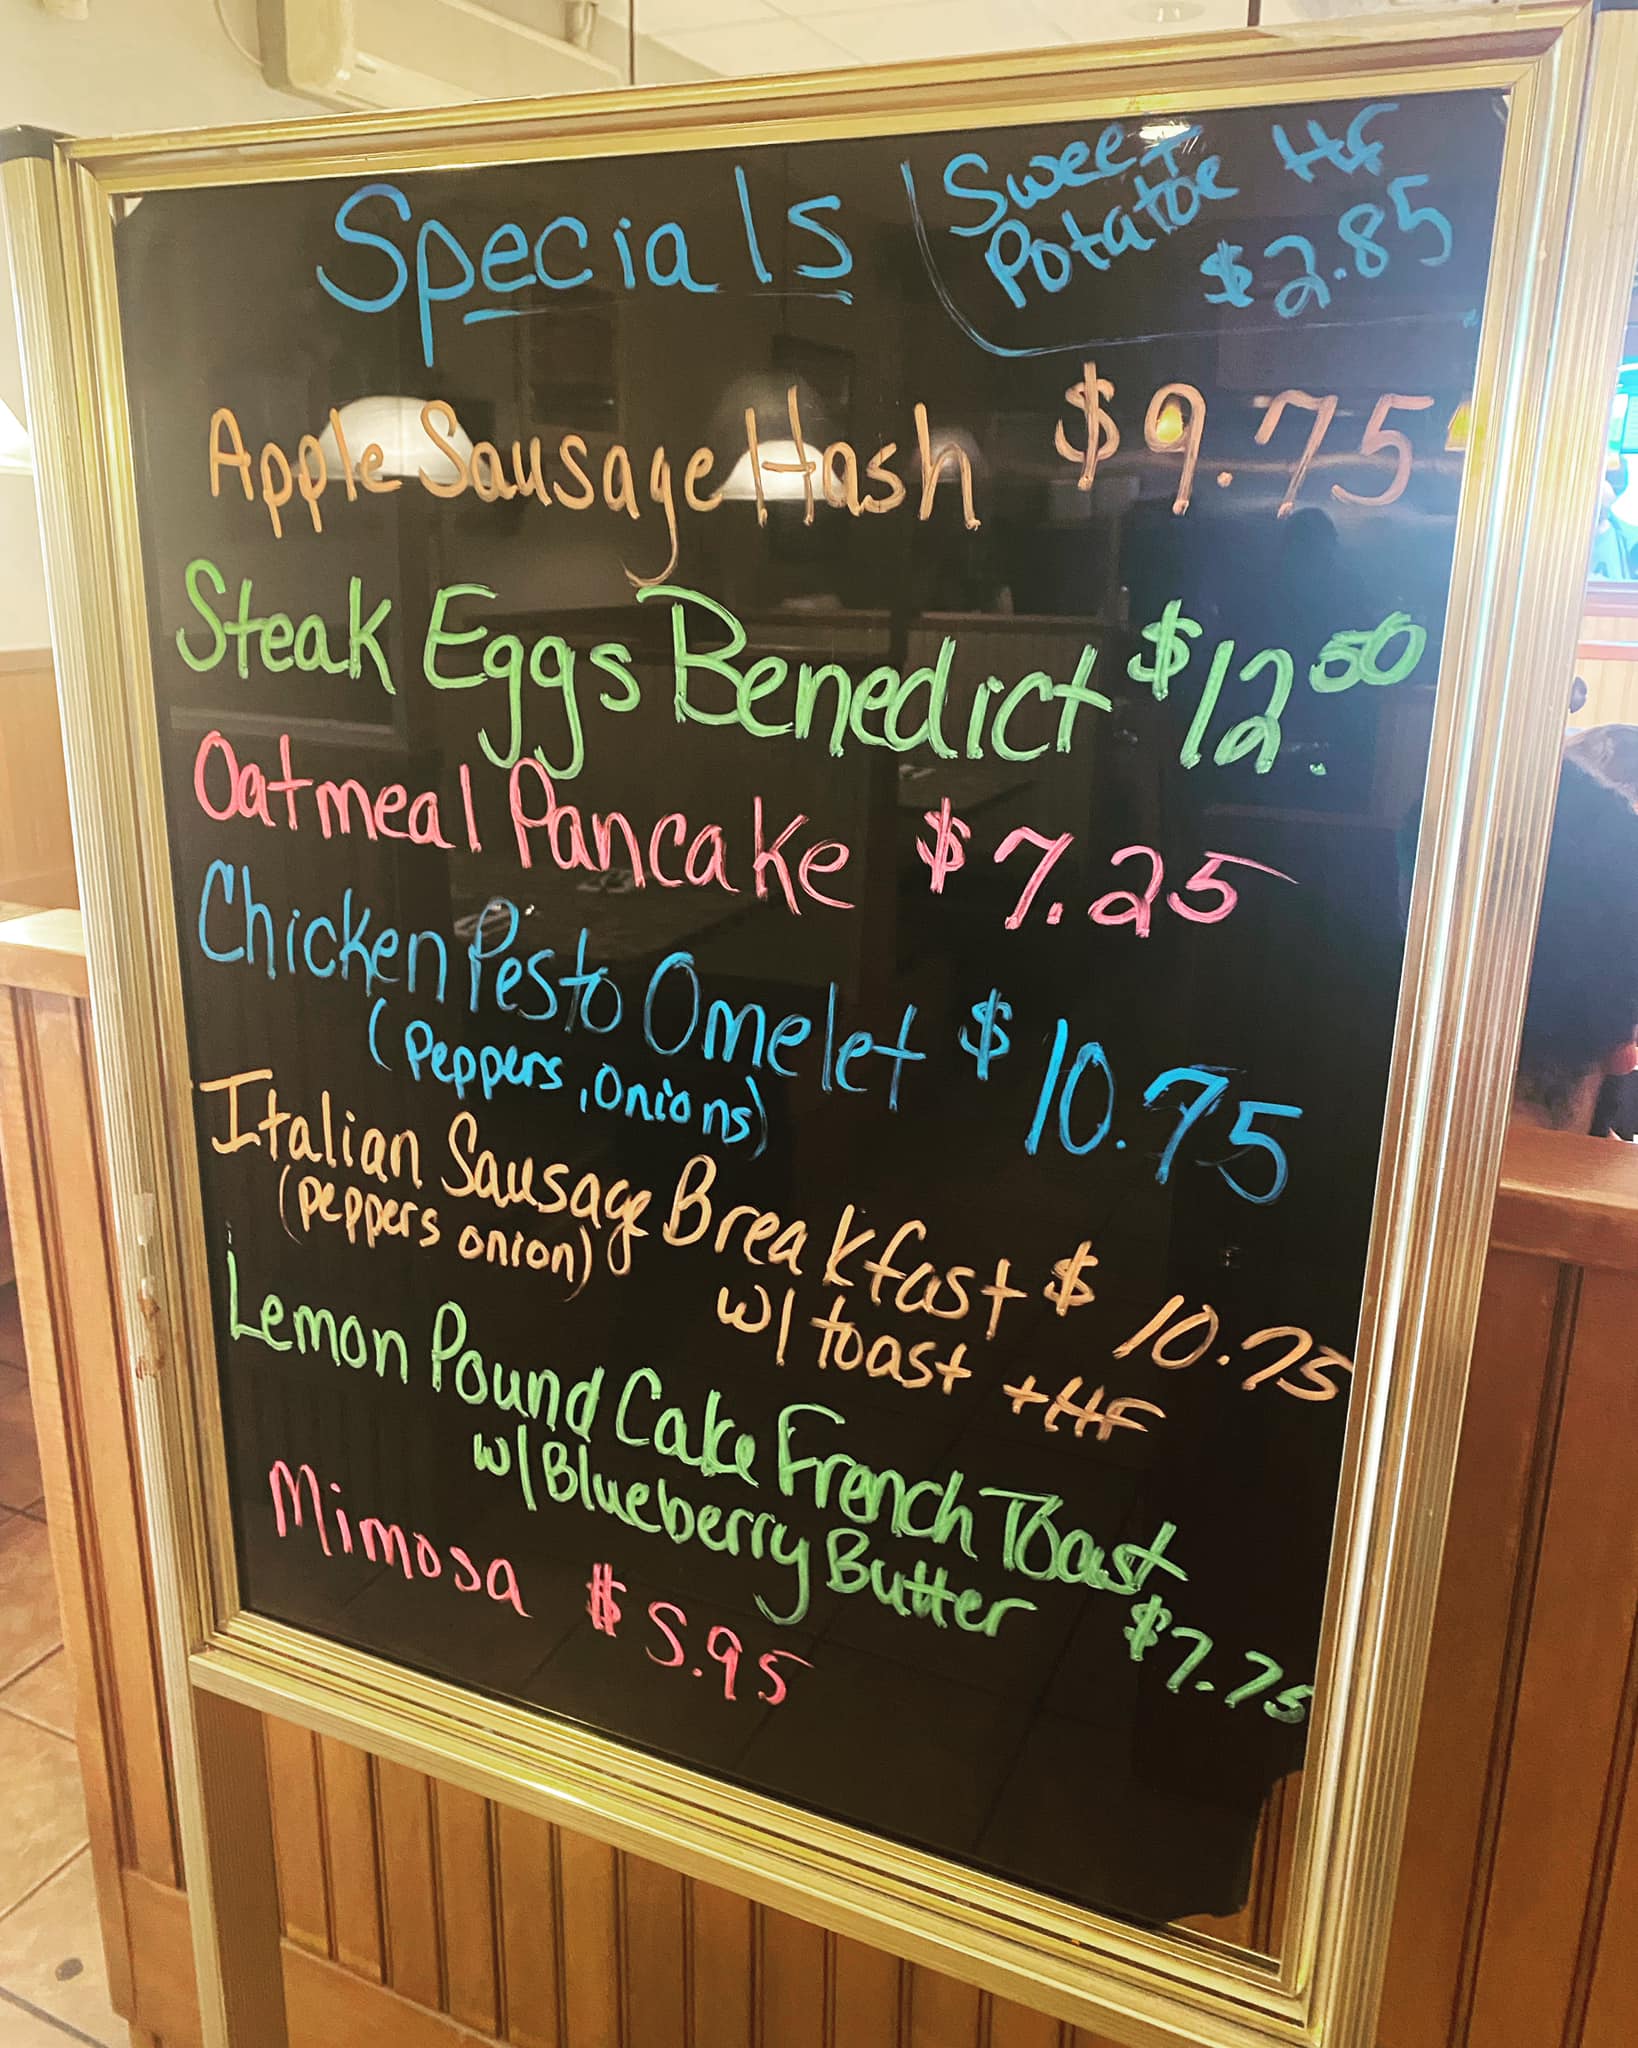 Specials
Sweet HF
Potatoe
$2.85
Apple Sausage Hash $9.75
Steak Eggs Benedict $12.50
Oatmeal Pancake $7.25
Chicken Pesto Omelet $10.75
(Peppers, Onions)
Italian Sausage Breakfast $10.75
(peppers onion) w/ toast + HF
Lemon Pound Cake French Toast
w/ Blueberry Butter $7.75
Mimosa $5.95